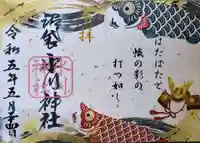 はたはたと
幟の影の
打つ如し
拝
沼袋氷川神社
令和五年五月